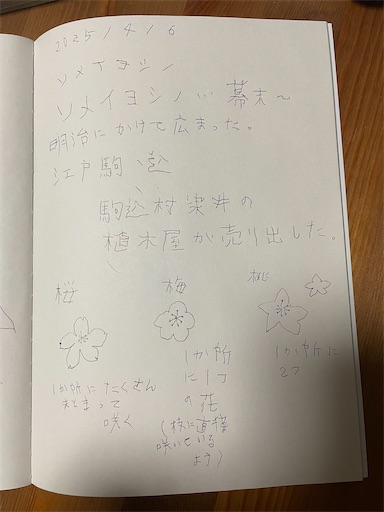 2025/4/6
ソメイヨシノ
ソメイヨシノ… 幕末～
明治にかけて広まった。
江戸駒込
駒込村染井の
植木屋が売り出した。
桜
梅
桃
1か所にたくさん
まとまって
咲く
1か所
に1つ
の花
(枝に直接
咲いている
よう)
1か所に
2つ